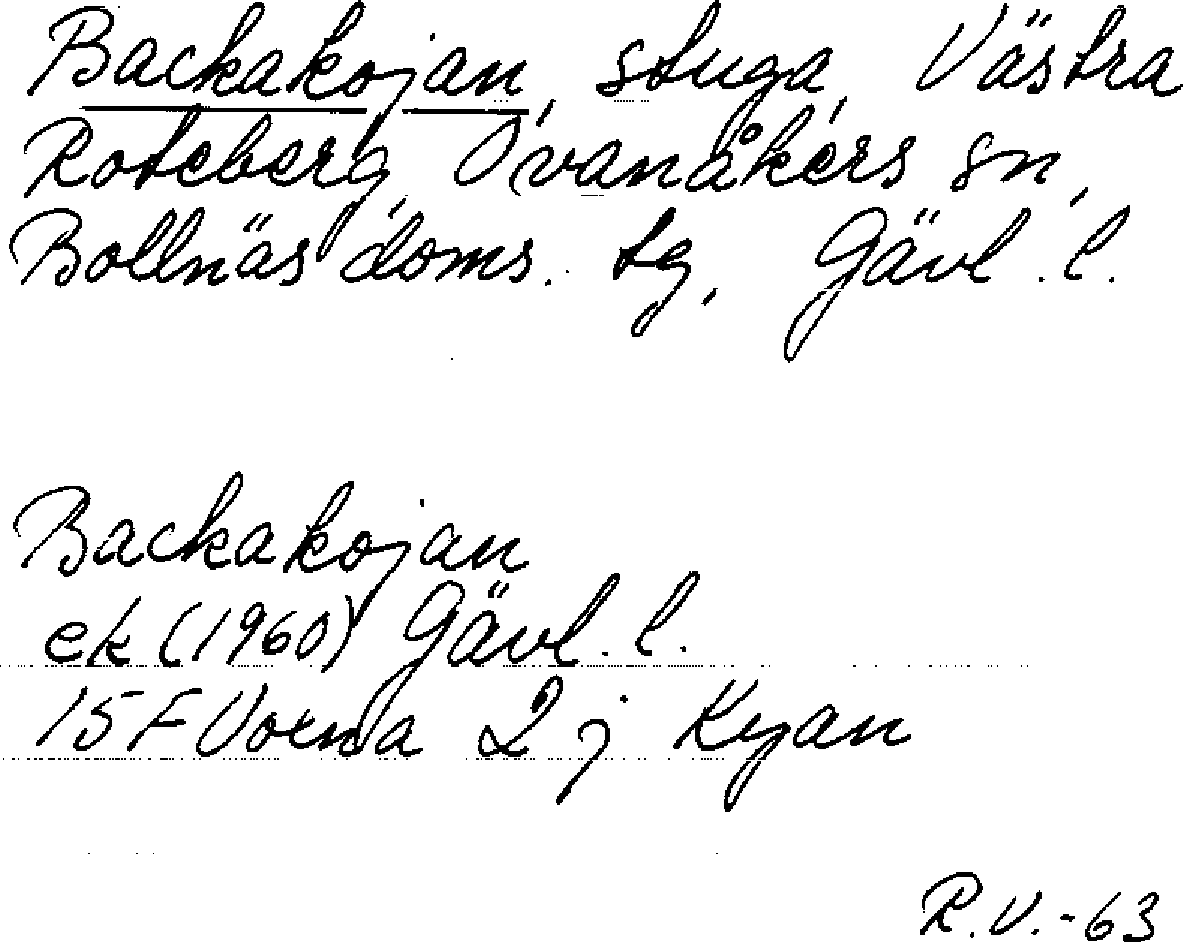 Backakojan, stuga, Västra
Roteberg, Ovanåkers sn,
Bollnäs doms. tg, Gävl. l.
Backakojan
ek (1960) Gävl. l.
15F Vorna 2 j Kyan
R.V.-63